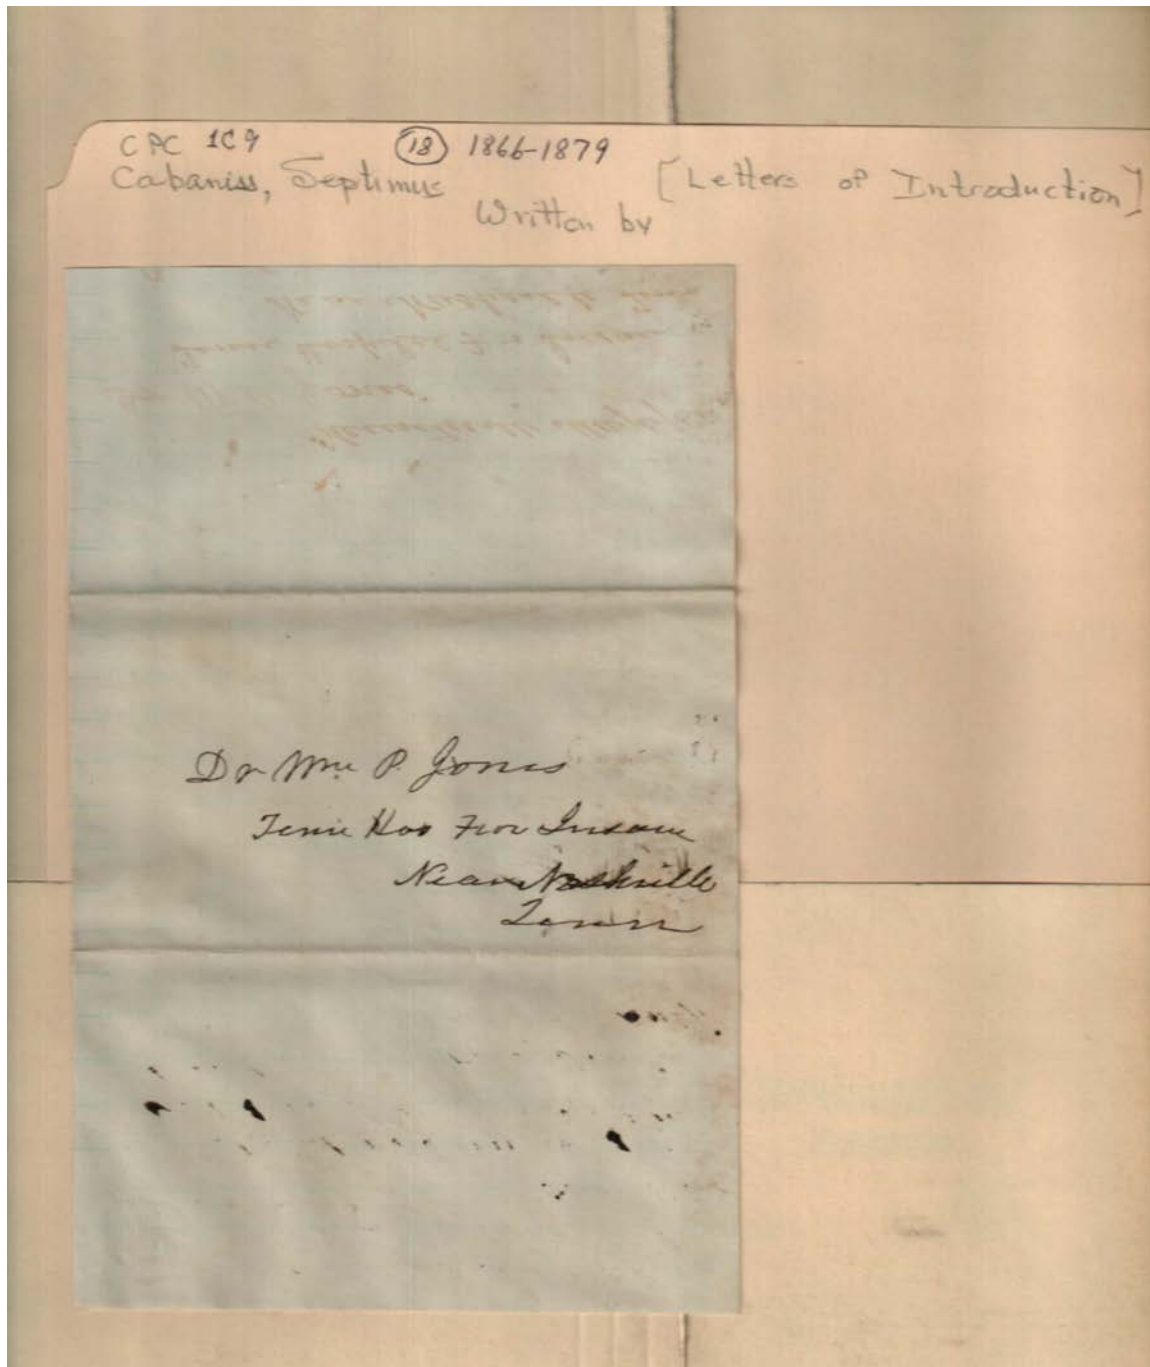 CPC 1C9 18 1866-1879
Cabaniss, Septimus [Letters of Introduction]
Written by
Dr Wm P. Jones
Tenn Hos For Insane
Near Nashville
Tenn